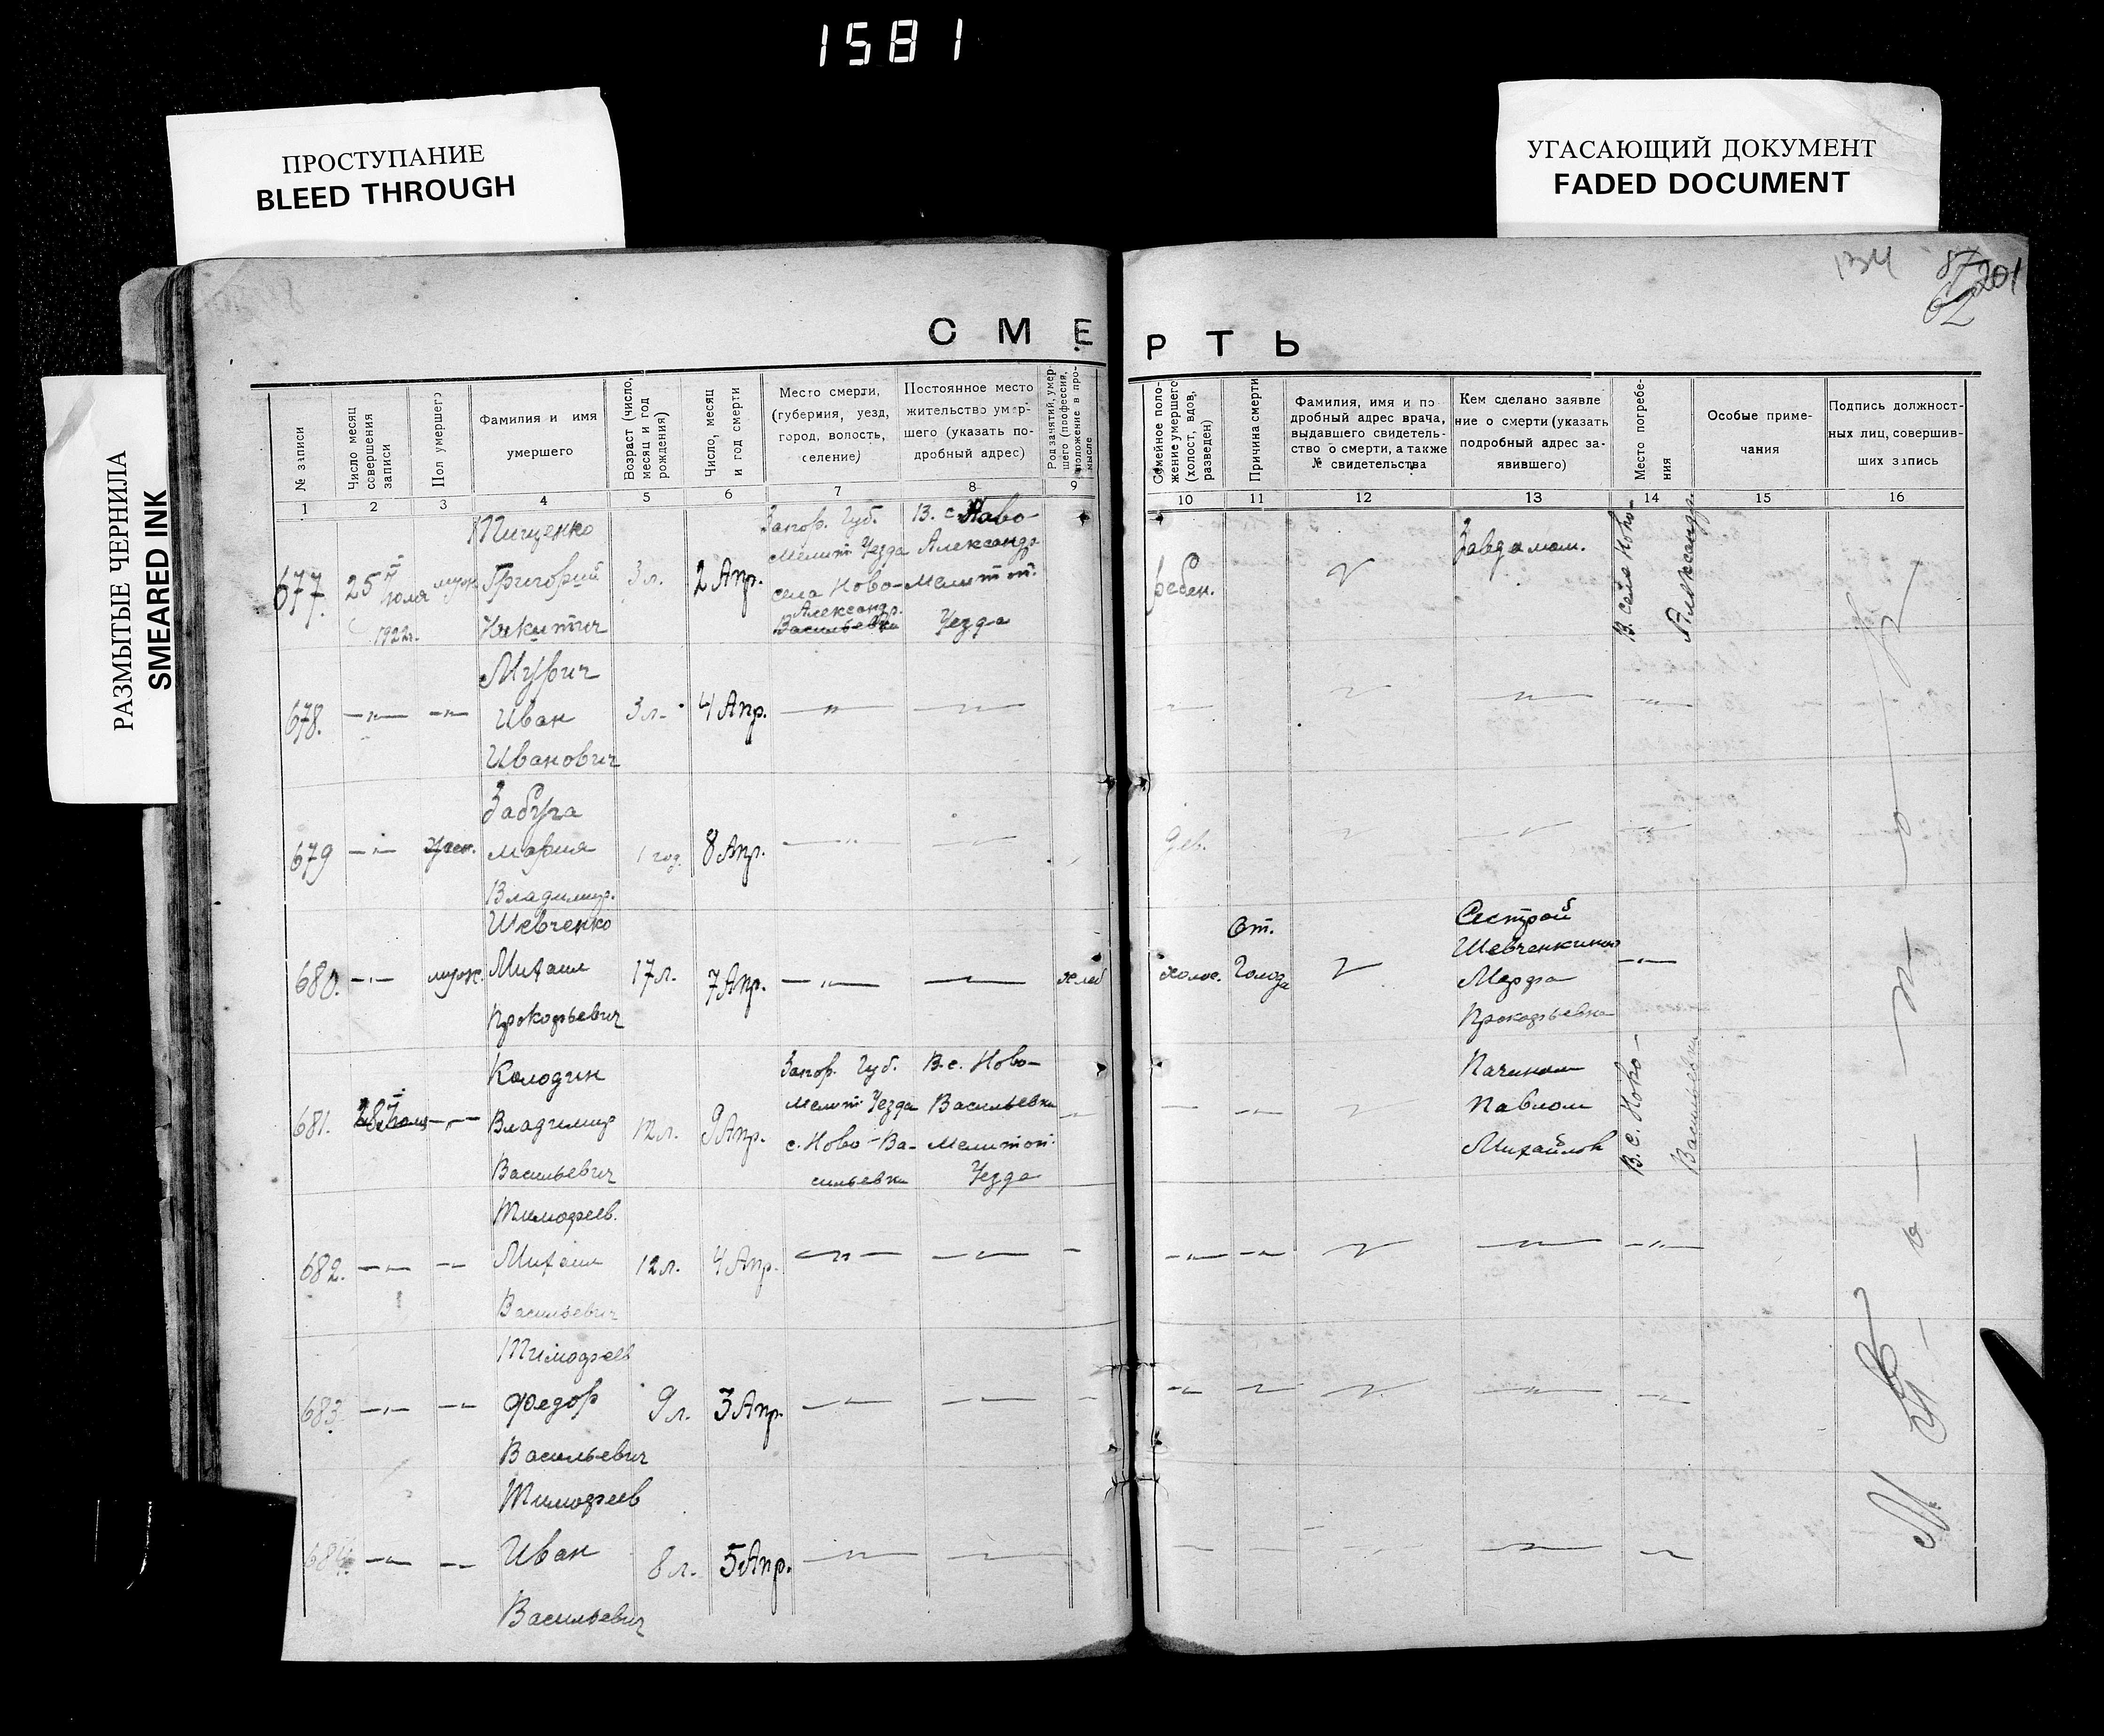 1581
ПРОСТУПАНИЕ
BLEED THROUGH
УГАСАЮЩИЙ ДОКУМЕНТ
FADED DOCUMENT
РАЗМЫТЫЕ ЧЕРНИЛА
SMEARED INK
134
87
62
201
СМЕРТЬ
№ записи
Число месяц
совершения
записи
Пол умершего
Фамилия и имя
умершего
Возраст (число,
месяц и год
рождения)
Число, месяц
и год смерти
Место смерти,
(губерния, уезд,
город, волость,
селение)
Постоянное место
жительство умер-
шего (указать по-
дробный адрес)
Род занятий, умер-
шего (профессия,
положение в про-
мысле
Семейное поло-
жение умершего
(холост, вдов,
разведен)
Причина смерти
Фамилия, имя и по
дробный адрес врача,
выдавшего свидетель-
ство о смерти, а также
№ свидетельства
Кем сделано заявле
ние о смерти (указать
подробный адрес за-
явившего)
Место погребе-
ния
Особые приме-
чания
Подпись должност-
ных лиц, совершив-
ших запись
1 2 3 4 5 6 7 8 9 10 11 12 13 14 15 16
677.
25 Июля
1922г.
муж.
Тищенко
Григорий
Никитич
3 л.
2 Апр.
Запор. Губ.
Мелит Уезда
села Ново-
Александр.
Васильевка
В. с. Ново-
Александр
Мелитоп.
Уезда
ребен.
Завдамом.
В. Селе Ново-
Александр
678. —"— —"—
Мурич
Иван
Иванович
3 л.
4 Апр.
—"— —"—
679 —"— жен.
Забуга
Мария
Владимир.
1 год.
8 Апр.
—"— —"—
дев.
680. —"— муж.
Шевченко
Михаил
Прокофьевич
17 л.
7 Апр.
—"— —"—
хлеб
холос.
От.
Голода
Сестрой
Марфа
Прокофьевна
—"—
681.
28 Июля
—"—
Колодин
Владимир
Васильевич
12 л.
9 Апр.
Запор. Губ.
Мелит Уезда
с. Ново-Ва-
сильевка
В. с. Ново-
Васильевка
Мелитоп.
Уезда
Павлом
Михайлов
В. С. Ново-
Васильевка
682. —"— —"—
Тимофеев.
Михаил
Васильевич
12 л.
4 Апр.
—"— —"—
683. —"— —"—
Тимофеев
Федор
Васильевич
9 л.
3 Апр.
—"— —"—
684. —"— —"—
Тимофеев
Иван
Васильевич
8 л.
5 Апр.
—"— —"—